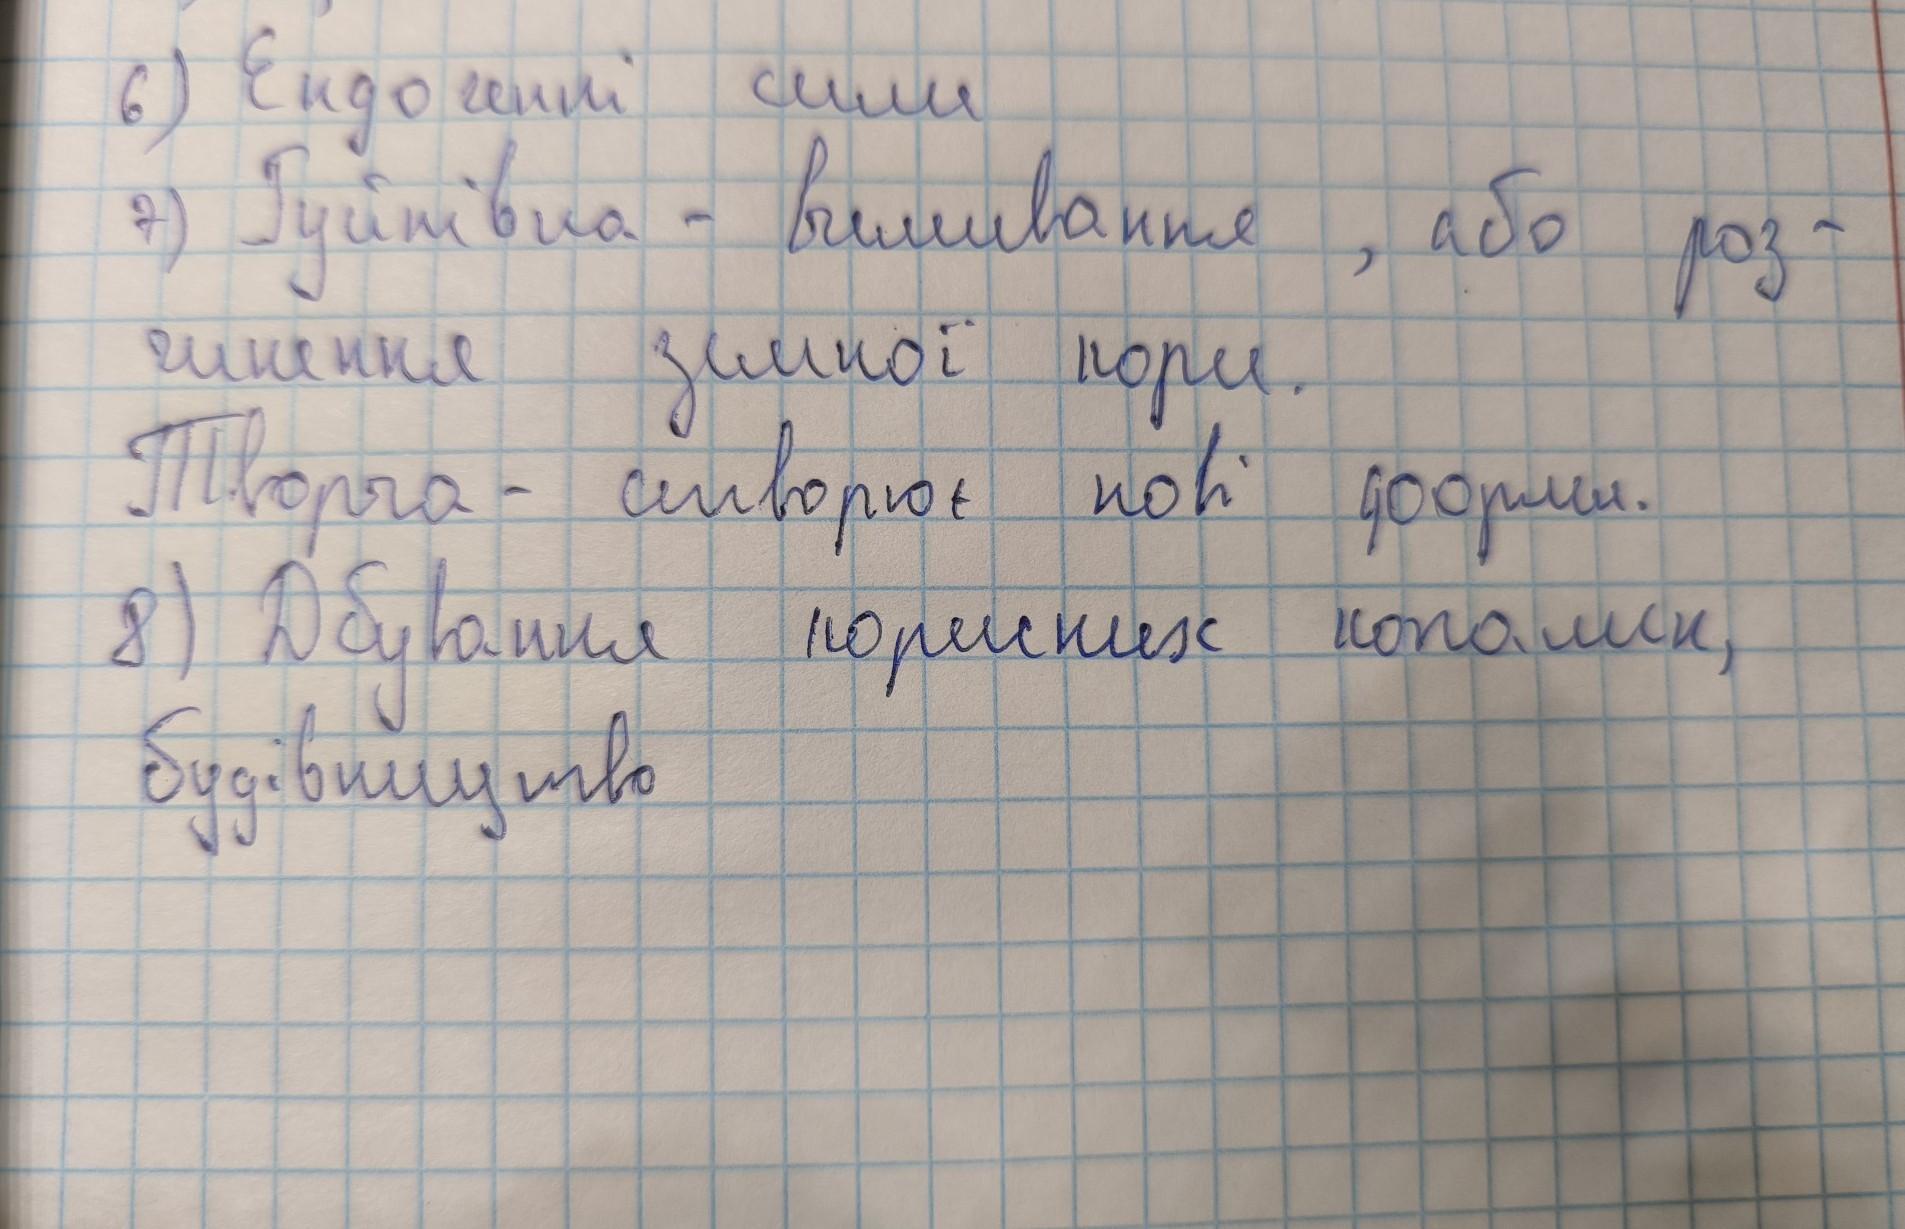 6) Ендогенні сили
7) Руйнівна - вимивання, або роз-
чинення земної кори.
Творча - створює нові форми.
8) Дбування корисних копалин,
будівництво